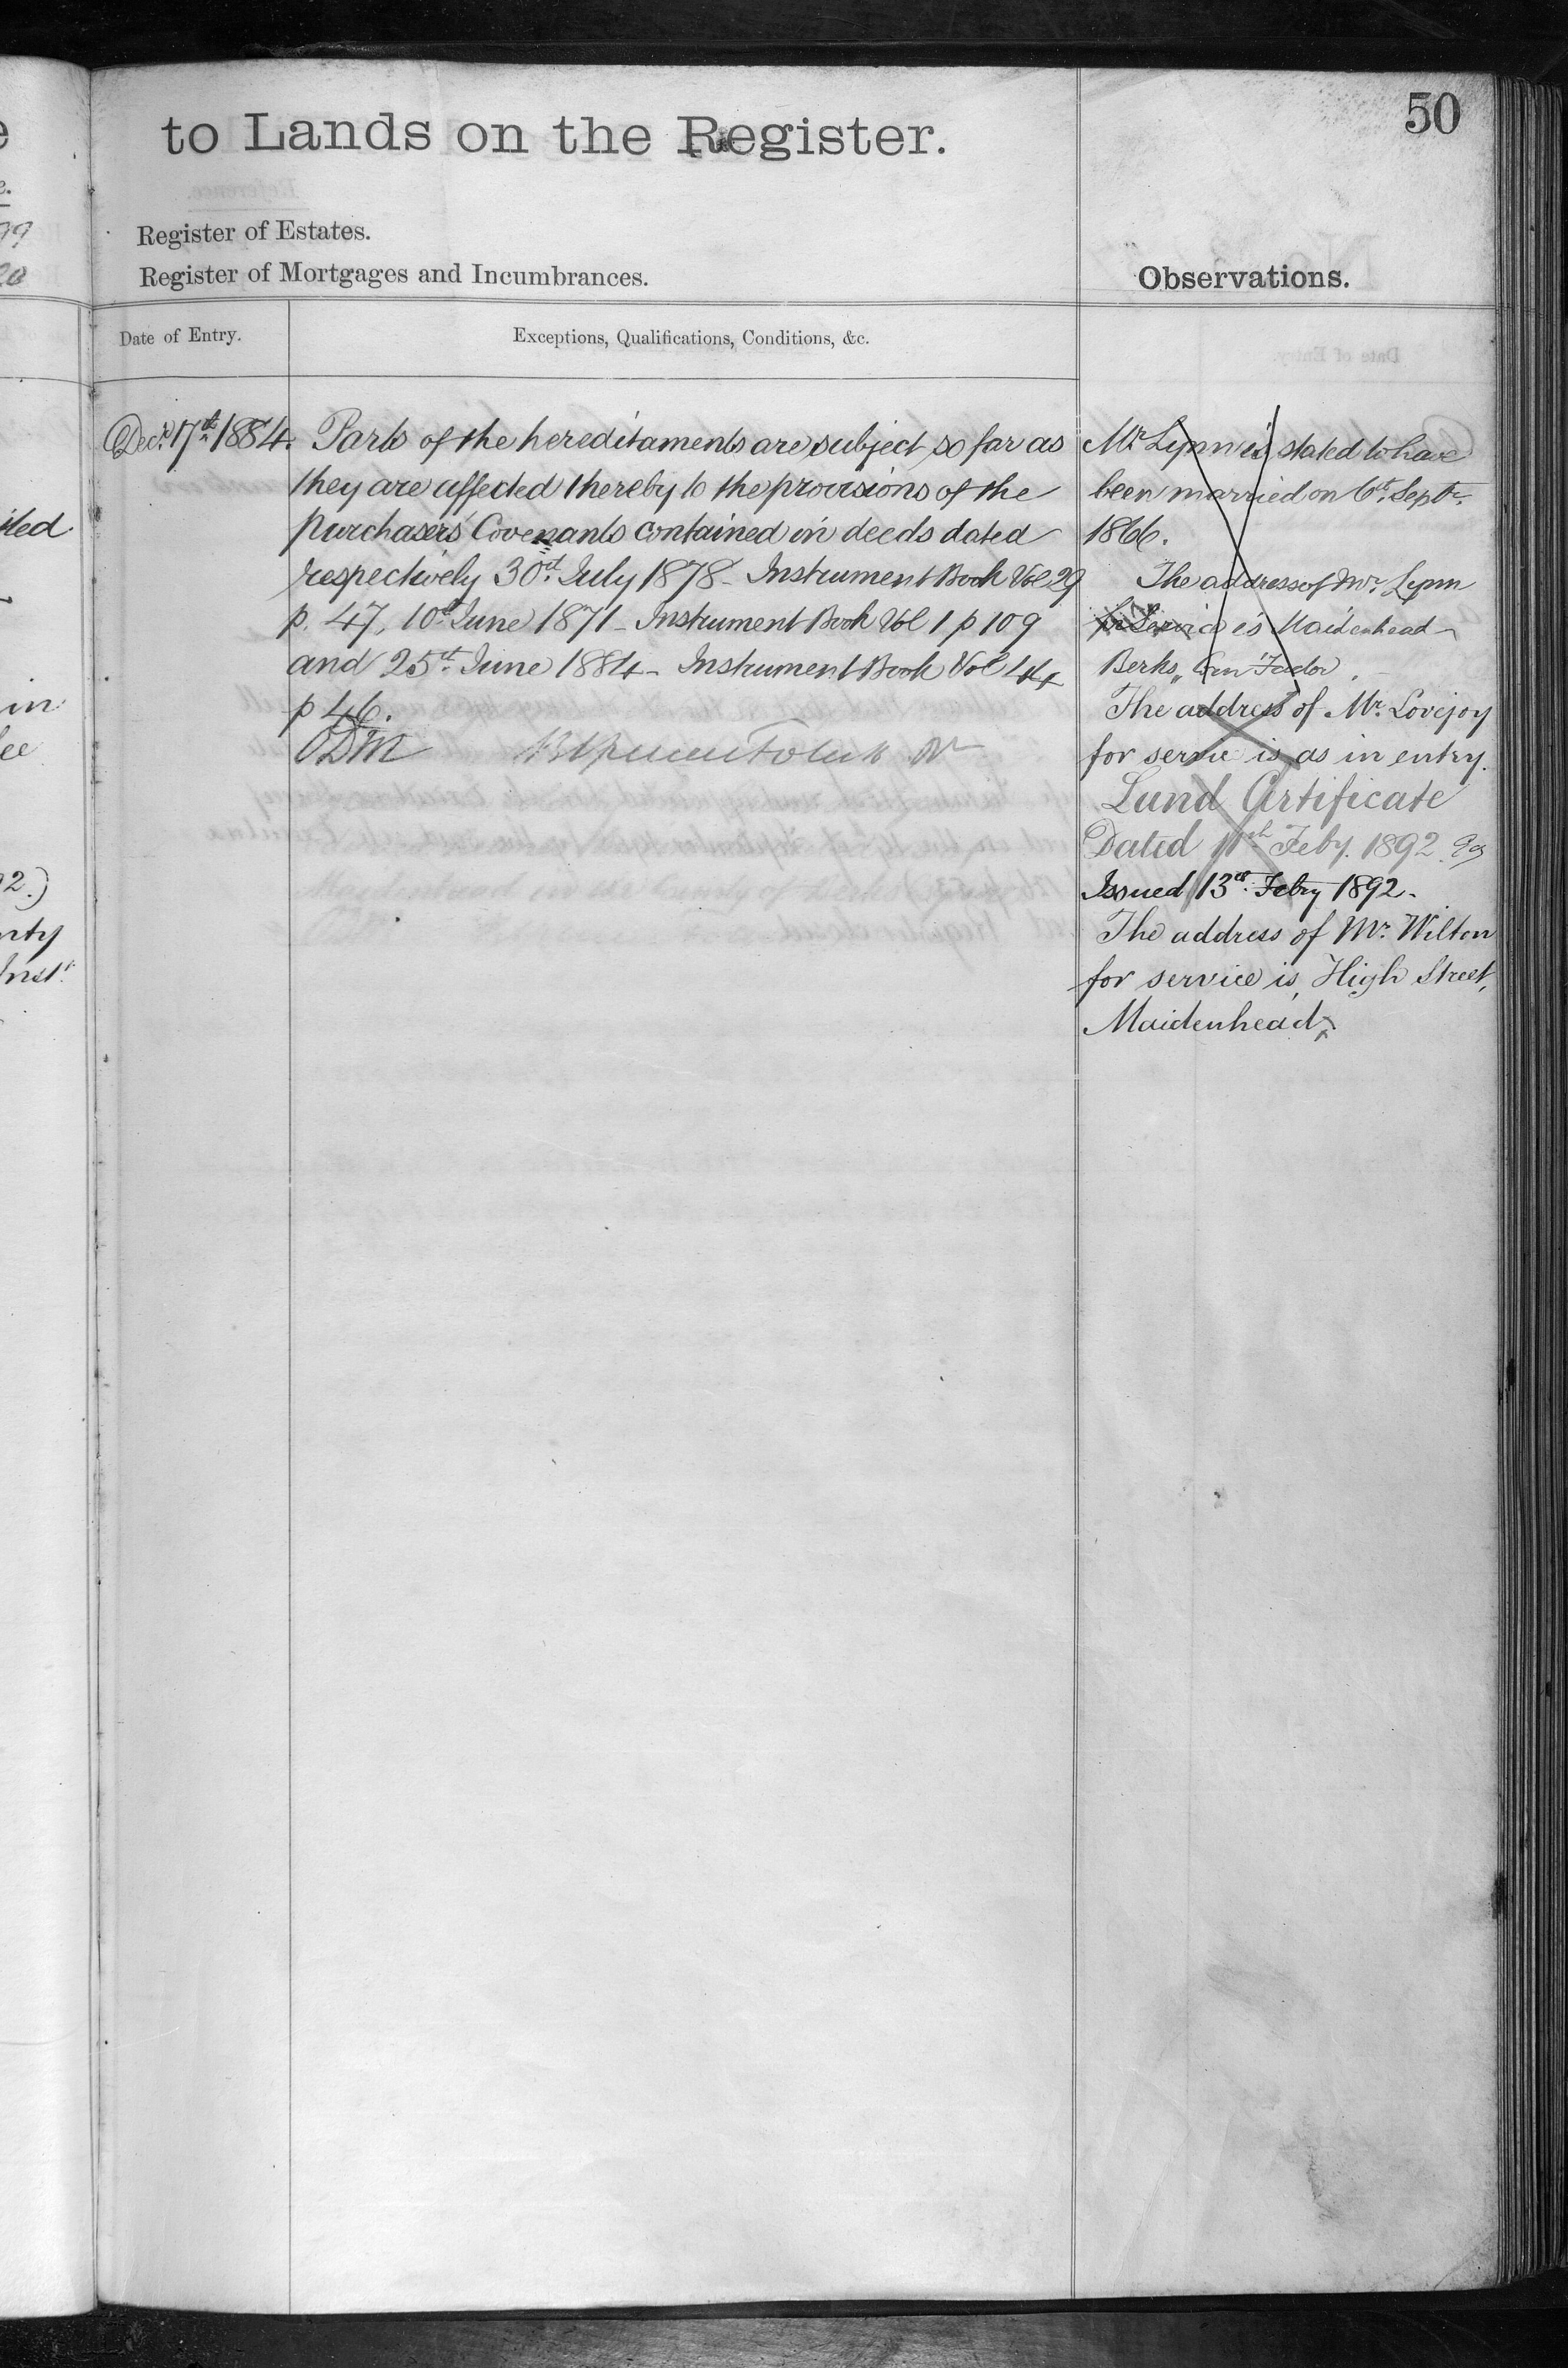 50
to Lands on the Register.
Register of Estates.
Register of Mortgages and Incumbrances.
Observations.
Date of Entry.
Exceptions, Qualifications, Conditions, &c.
Decr. 17th 1884.
Parts of the hereditaments are subject so far as
they are affected thereby to the provisions of the
Purchasers' Covenants contained in deeds dated
respectively 30th July 1878 - Instrument Book Vol 29
p. 47, 10th June 1871 - Instrument Book Vol 1 p 109
and 25th June 1884 - Instrument Book Vol 44
p 46.
Mr Lynn is stated to have
been married on 6th Septr.
1866.
The address of Mr. Lynn
for Service is Maidenhead
Berks,
The address of Mr. Lovejoy
for service is as in entry.
Land Certificate
Dated 11th Feby. 1892
Issued 13th Febry 1892.
The address of Mr. Wilton
for service is, High Street,
Maidenhead.
ited
in
ee
92.)
rty
Inst.